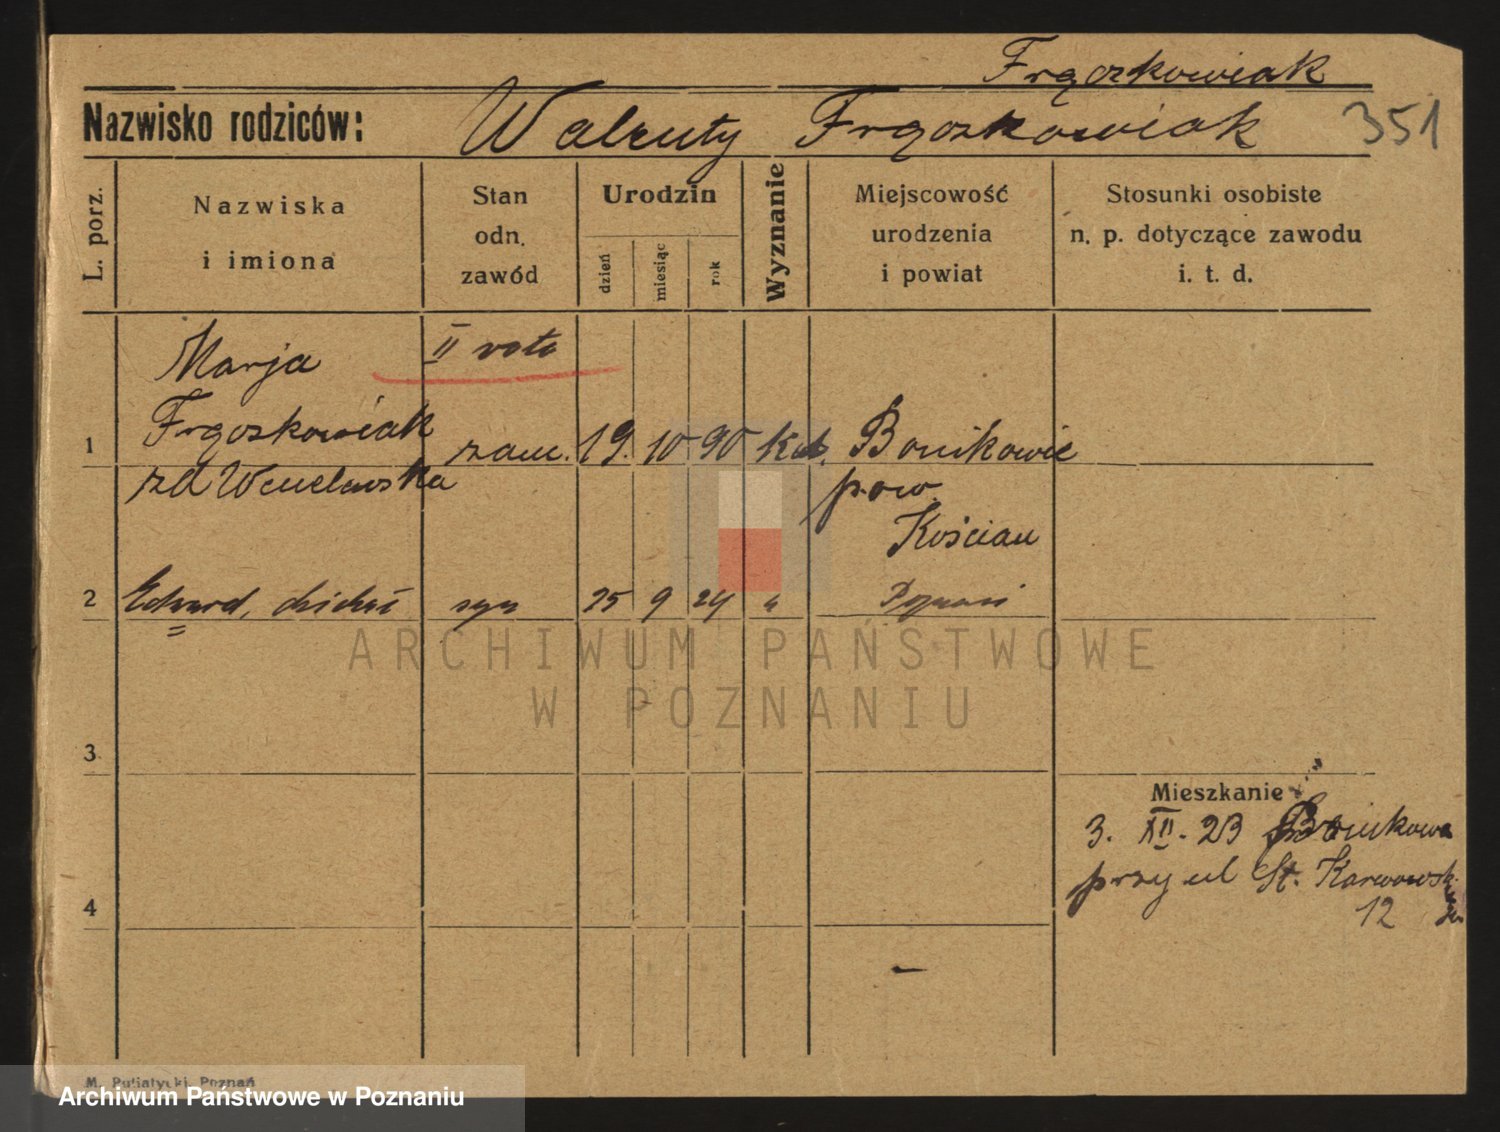 Frąckowiak
Nazwisko rodziców: Walenty Frąckowiak 351
L. porz.
Nazwiska
i imiona
Stan
odn.
zawód
Urodzin
dzień
miesiąc
rok
Wyznanie
Miejscowość
urodzenia
i powiat
Stosunki osobiste
n. p. dotyczące zawodu
i. t. d.
Marja II voto
1 Frąckowiak zam. 19. 10 90 kat. Bonikowie
zd pow.
Kościan
2 Edward, syn 25 9 24 " Poznań
3
Mieszkanie
3. XII. 23 Bonikowo
przy ul St. Karwowsk
4
12
M. Putiatycki, Poznań
ARCHIWUM PAŃSTWOWE
W POZNANIU
Archiwum Państwowe w Poznaniu